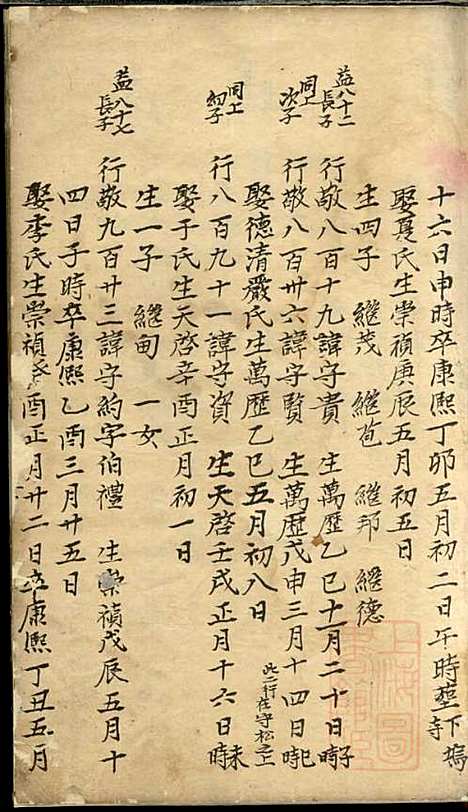 十六日申時卒康熙丁卯五月初二日午時塟下塢寺
娶夏氏生崇禎庚辰五月初五日
生四子 繼茂 繼苞 繼邦 繼德
益八十二長子 行敬八百十九諱守貴 生萬歷乙巳十一月二十日子時
同上次子 行敬八百卅六諱守賢 生萬歷戊申三月十四日巳時
娶德清嚴氏生萬歷乙巳五月初八日 此二行在守松之上
同上幼子 行八百九十一諱守資 生天啓壬戌正月十六日未時
娶于氏生天啓辛酉正月初一日
生一子 繼甸 一女
益八十七長子 行敬九百卅三諱守約字伯禮 生崇禎戊辰五月十
四日子時卒康熙乙酉三月廿五日
娶季氏生崇禎酉正月廿二日卒康熙丁丑五月